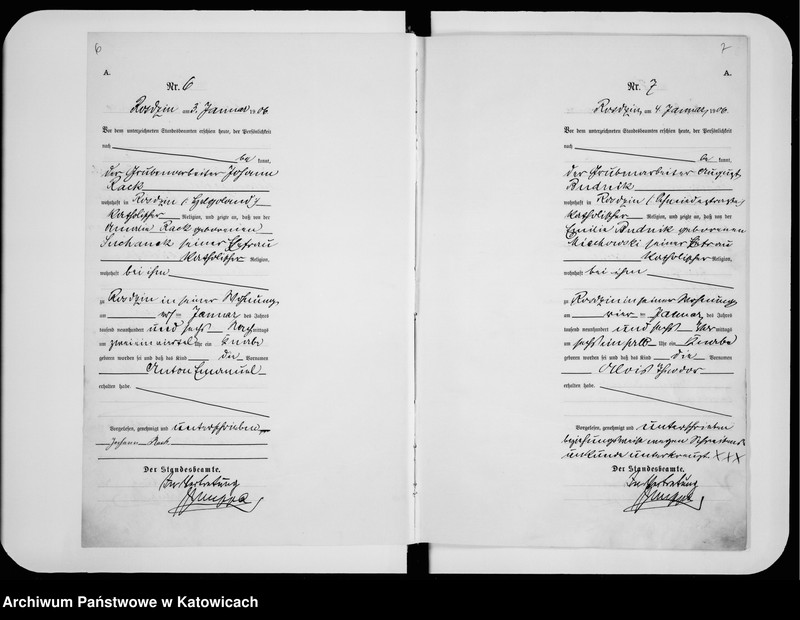 6
A.
Nr. 6
Rosdzin am 3. Januar 1906
Vor dem unterzeichneten Standesbeamten erschien heute, der Persönlichkeit
nach
be kannt,
der Grubenarbeiter Johann
Rack
wohnhaft in Rosdzin (Helgoland)
katholischer Religion, und zeigte an, daß von der
Amalie Rack geborenen
Suchanek seiner Ehefrau
katholischer Religion,
wohnhaft bei ihm
zu Rosdzin in seiner Wohnung
am Januar des Jahres
tausend neunhundert und sechs Nachmittags
um zwei ein viertel Uhr ein Knabe
geboren worden sei und daß das Kind die Vornamen
Anton Emanuel
erhalten habe.
Vorgelesen, genehmigt und unterschrieben
Johann Rack
Der Standesbeamte.
In Vertretung
7
A.
Nr. 7
Rosdzin, am 4. Januar 1906.
Vor dem unterzeichneten Standesbeamten erschien heute, der Persönlichkeit
nach
be kannt,
der Grubenarbeiter August
Budnik
wohnhaft in Rosdzin
katholischer Religion, und zeigte an, daß von der
Emilie Budnik geborenen
Miechowski seiner Ehefrau
katholischer Religion,
wohnhaft bei ihm
zu Rosdzin in seiner Wohnung
am vier Januar des Jahres
tausend neunhundert und sechs Vor mittags
um sechs ein halb Uhr ein Knabe
geboren worden sei und daß das Kind die Vornamen
Alois Theodor
erhalten habe.
Vorgelesen, genehmigt und unterschrieben
beziehungsweise wegen Schreibens
unkunde unterkreuzt XXX
Der Standesbeamte.
In Vertretung
Archiwum Państwowe w Katowicach